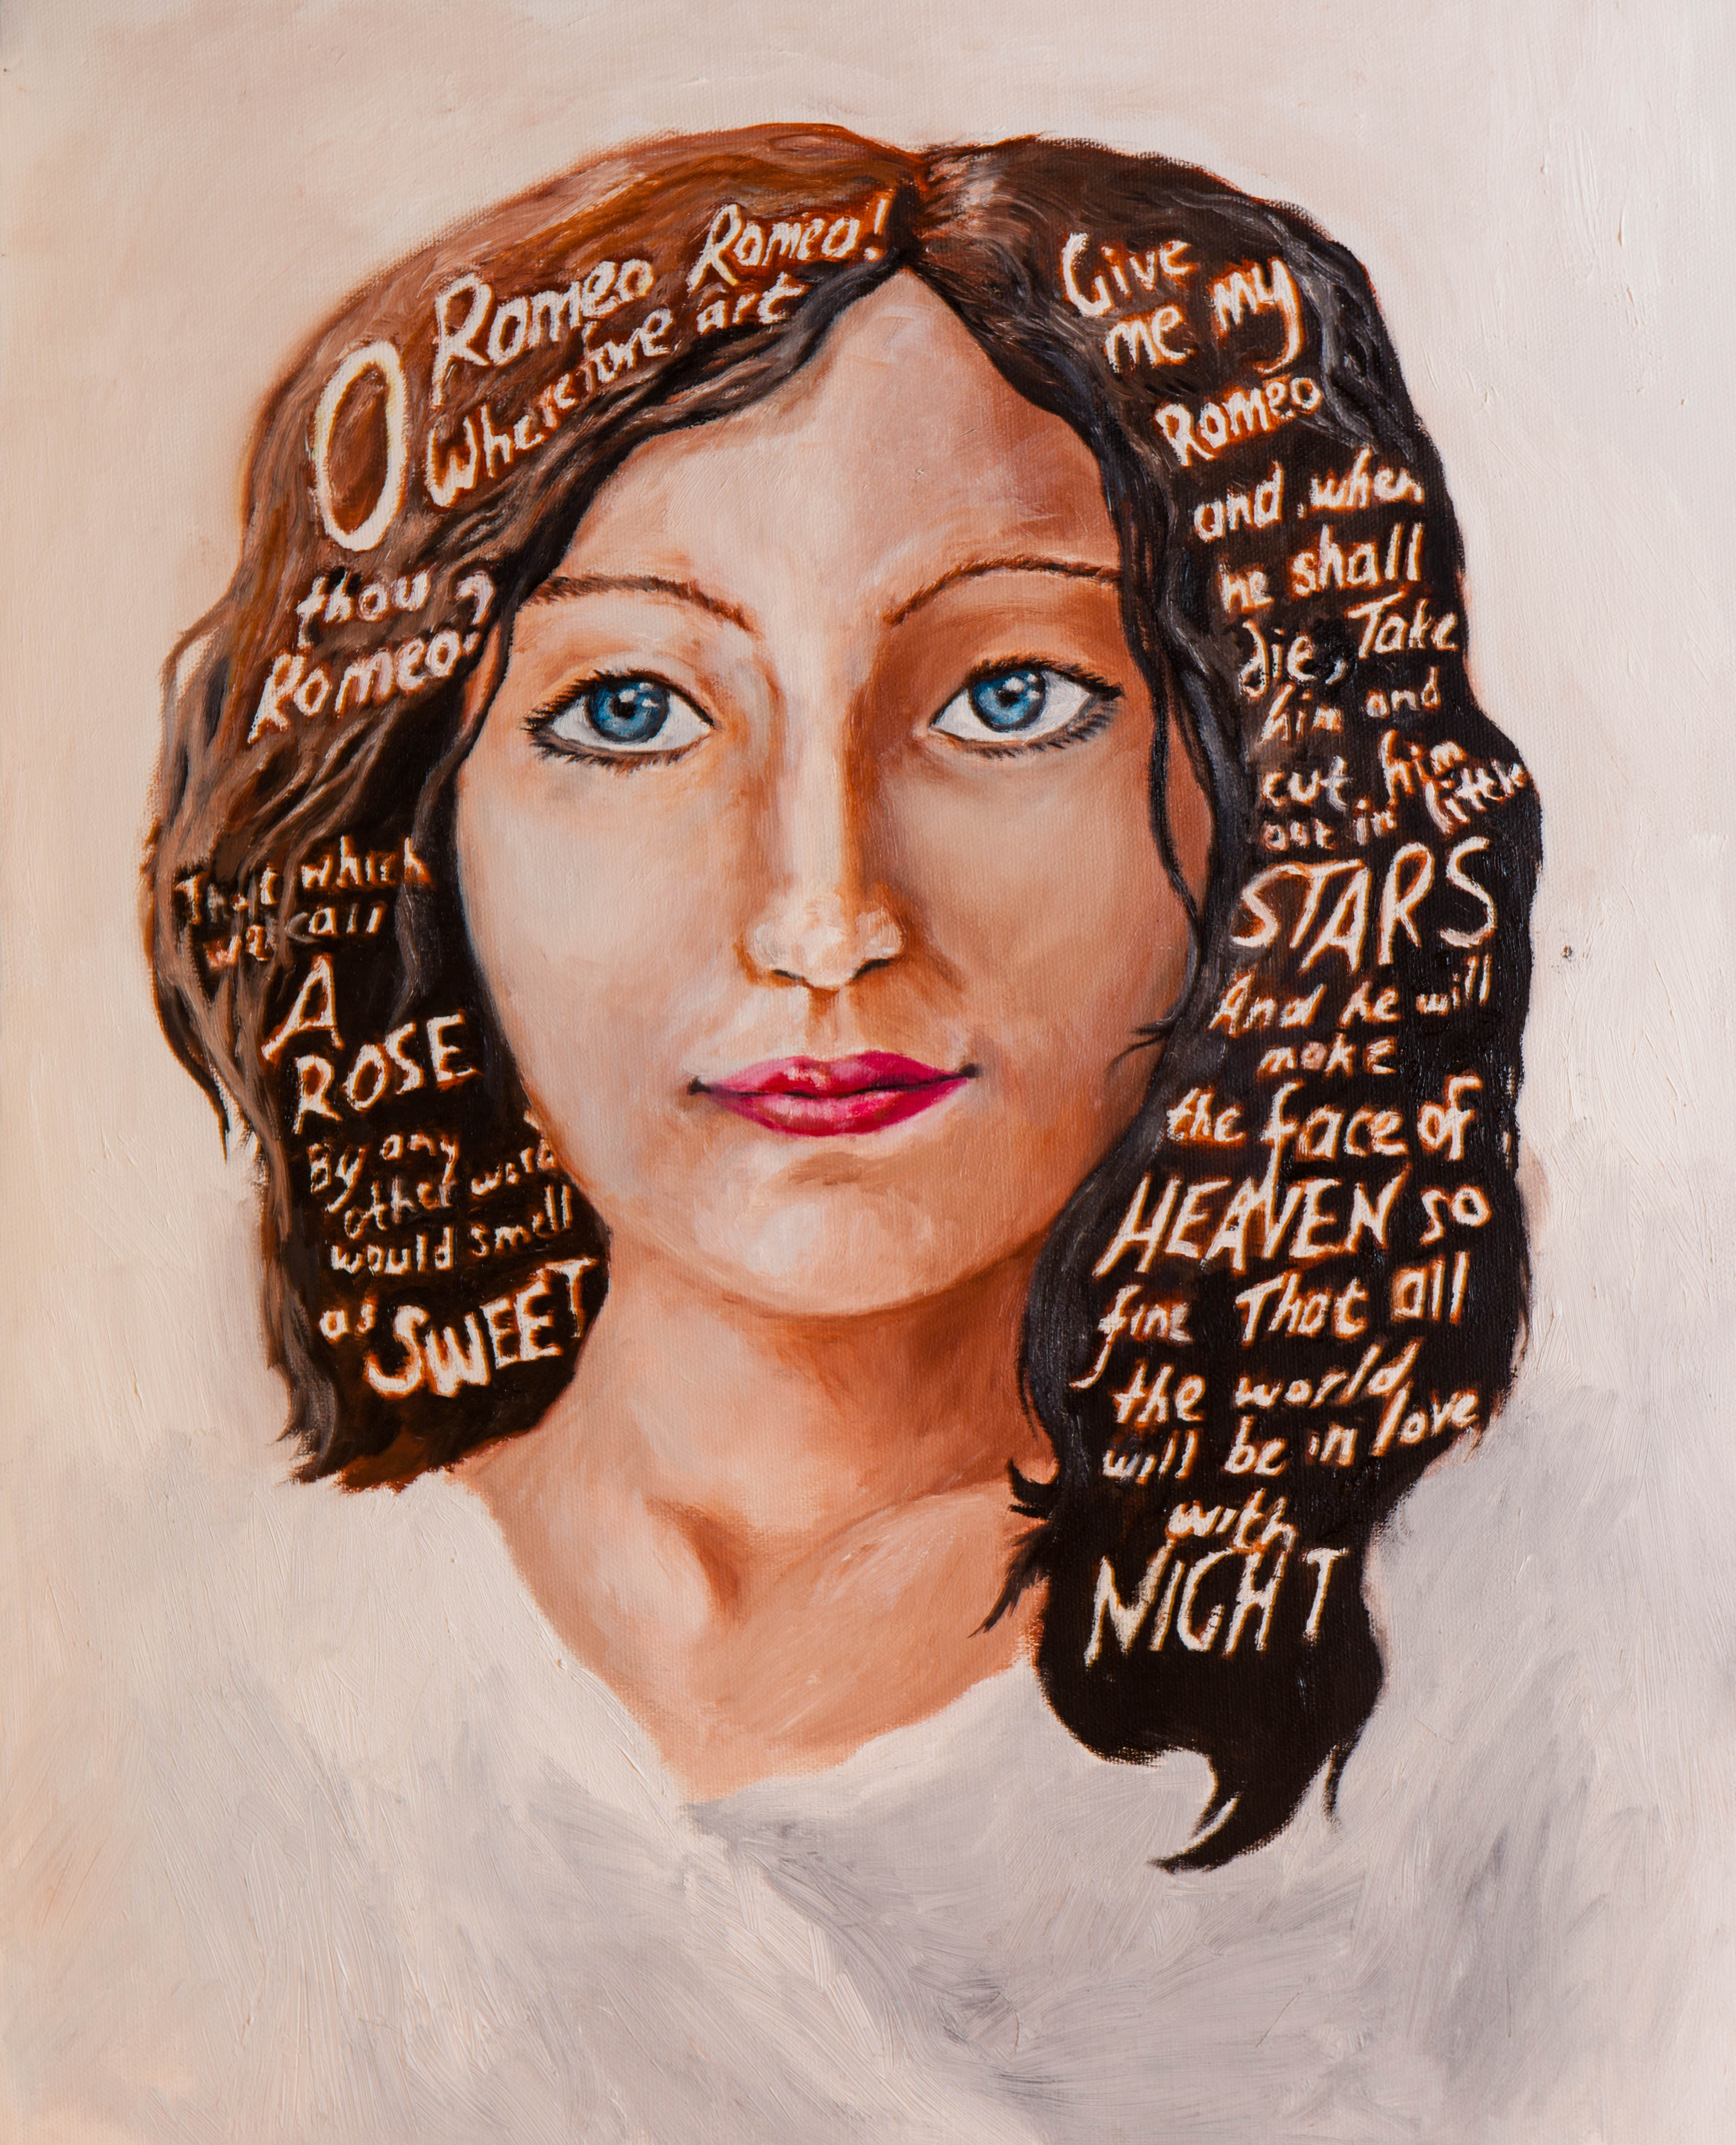 O Romeo Romeo!
Wherefore art
thou ?
Romeo?
That which
we call
A
ROSE
By any
other word
would smell
as SWEET
Give
me my
Romeo
and, when
he shall
die, Take
him and
cut him
out in little
STARS
And he will
make
the face of
HEAVEN so
fine That all
the world
will be in love
with
NIGHT